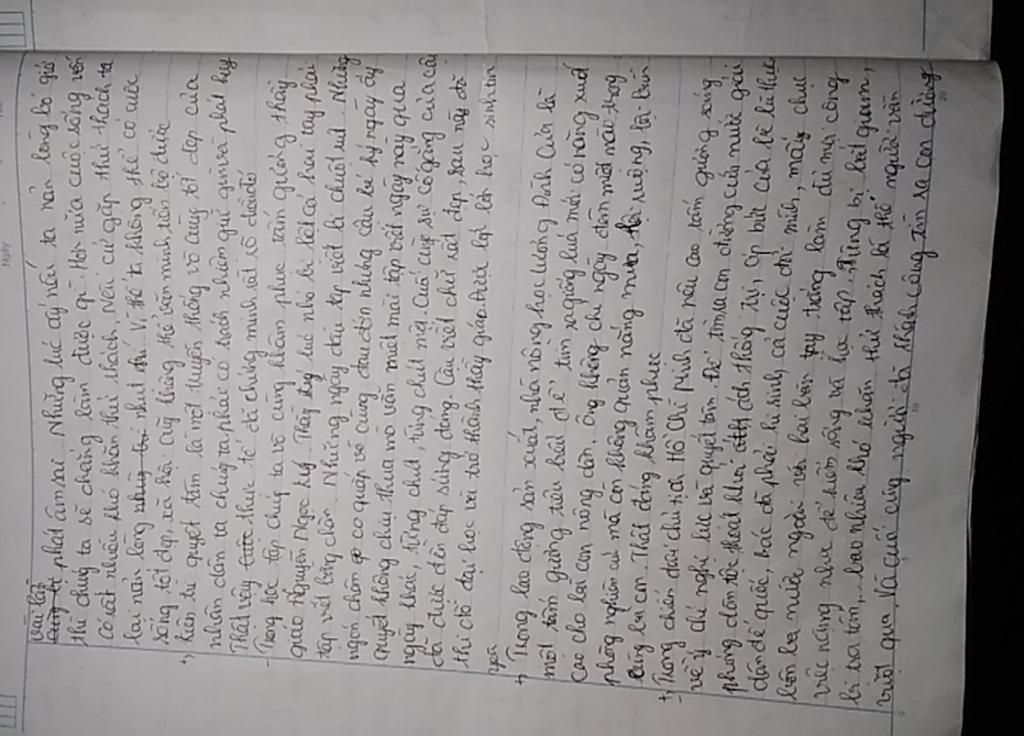 vấp
phát âm sai Những lúc ấy nếu ta nản lòng bỏ giở
thì chúng ta sẽ chẳng làm được gì. Hơn nữa cuộc sống vốn
có rất nhiều khó khăn thử thách, Nếu cứ gặp thử thách ta
lại nản lòng như thế thì ta không thể có cuộc
sống tốt đẹp, xã hội cũng không thể văn minh tiến bộ được
kiên trì quyết tâm là một truyền thống vô cùng tốt đẹp của
nhân dân ta chúng ta phải có trách nhiệm giữ gìn và phát huy
Thật vậy thực tế đã chứng minh rất rõ điều đó
- Trong học tập chúng ta vô cùng khâm phục tấm gương thầy
giáo Nguyễn Ngọc Ký. Thầy Ký lúc nhỏ bị liệt cả hai tay phải
tập viết bằng chân Những ngày đầu tập viết bị chuột rút. Những
ngón chân co quắp vô cùng đau đớn nhưng cậu bé Ký ngày ấy
Quyết không chịu thua mà vẫn miệt mài tập viết ngày này qua
ngày khác, từng chút, từng chút một. Cuối cùng sự cố gắng của cậu
đã được đền đáp xứng đáng. Cậu viết chữ rất đẹp, sau này đã
thi đỗ đại học và trở thành thầy giáo được học sinh
+, Trong lao động sản xuất, nhà nông học Lương Định Của là
một tấm gương tiêu biểu để tìm ra giống lúa mới có năng xuất
cao cho bà con nông dân. ông không chỉ ngày đêm miệt mài trong
phòng nghiên cứu mà còn không quản nắng mưa, lội ruộng, lội bùn
cùng bà con. Thật đáng khâm phục
+, Trong chiến đấu chủ tịch Hồ Chí Minh đã nêu cao tấm gương sáng
về ý chí nghị lực và quyết tâm. Để tìm ra con đường cứu nước giải
phóng dân tộc thoát khỏi ách thống trị, áp bức của bè lũ thực
dân đế quốc, bác đã phải hi sinh cả cuộc đời mình, mấy chục
năm bôn ba nước ngoài với hai bàn tay trắng làm đủ mọi công
việc nặng nhọc để kiếm sống và học tập. Từng bị bắt giam,
bị tra tấn, bao nhiêu khó khăn thử thách là thế người vẫn
vượt qua, Và cuối cùng người đã thành công tìm ra con đường